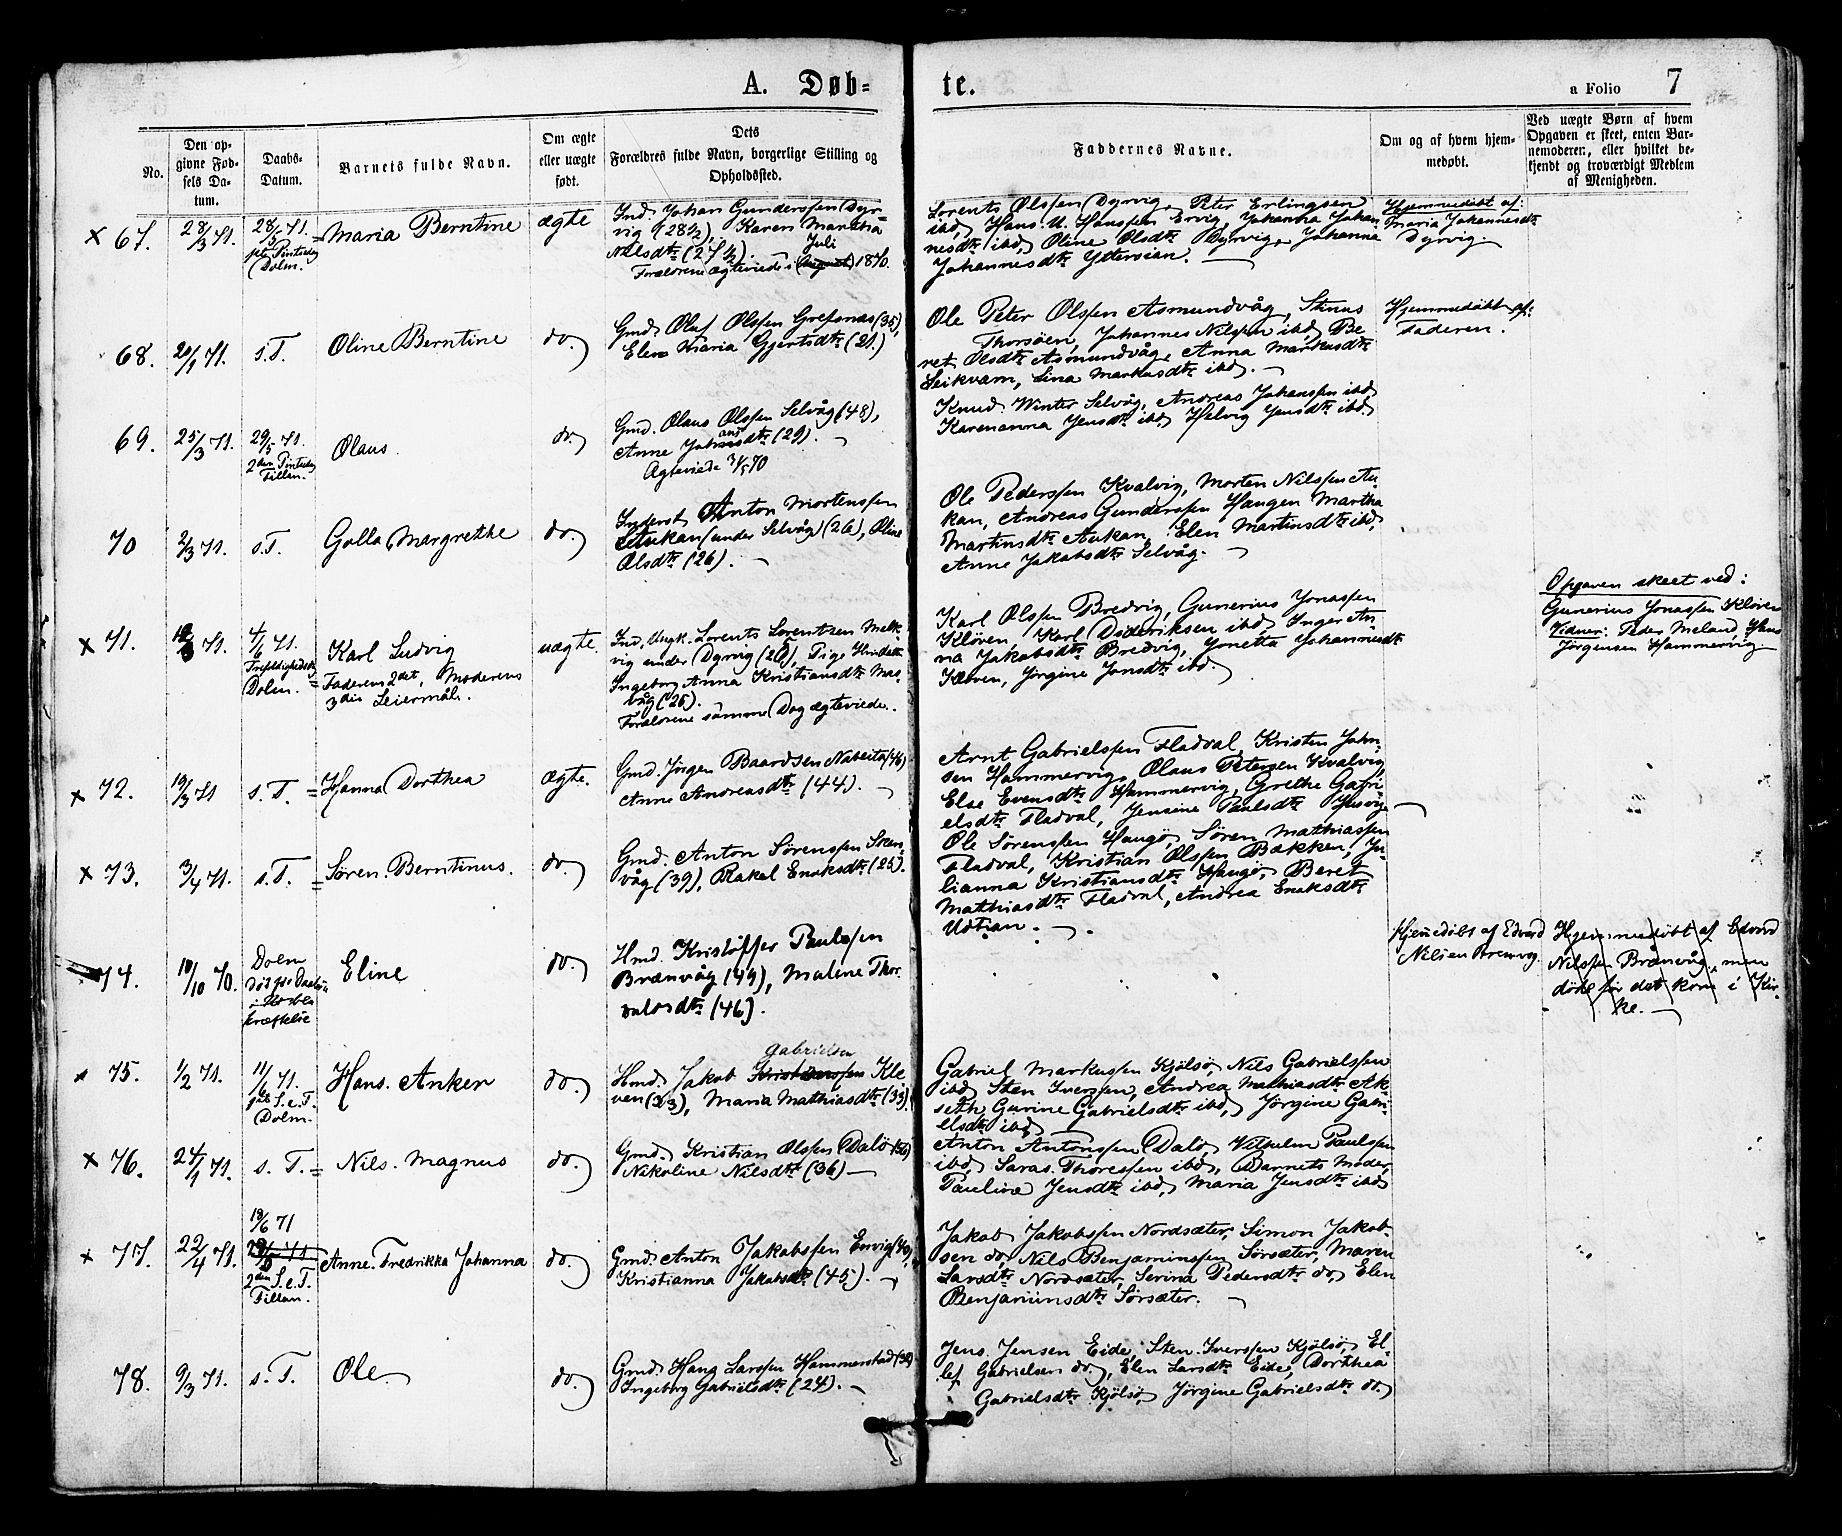 A. Døb=
te.
a Folio 7
No.
Den op-
givne Fød-
sels Da-
tum.
Daabs-
Datum.
Barnets fulde Navn.
Om ægte
eller uægte
født.
Dets
Forældres fulde Navn, borgerlige Stilling og
Opholdssted.
Faddernes Navne.
Om og af hvem hjem-
medøbt.
Ved uægte Børn af hvem
Opgaven er skeet, enten Bar-
nemoderen, eller hvilket be-
kjendt og troværdigt Medlem
af Menigheden.
× 67. 28/3 71. 28/5 71.
Dolm.
Maria Berntine
ægte
Ind. Johan Gunderssen Dyr-
vig (28½), Karen Martha
Nilsdtr (27½). Juli
Forældrene ægteviede i (August) 1870.
Lorents Olssen Dyrvig, Peter Erlingsen
ibd, Hans U. Hanssen Ervig, Johanna Johan-
nesdtr ibd, Oline Olsdtr Dyrvig, Johanna
Johannesdtr Yttersian.
Hjemmedøbt af:
Maria Johannesdtr
Dyrvig.
68. 20/1 71. s. T.
Oline Berntine
do.
Gmd. Oluf Olssen Grefsnæs (35),
Elen Maria Gjertsdtr (21.)
Ole Peter Olssen Asmundvåg, Stinus
Thorsøen, Johannes Nilssen ibd, Be-
ret Olsdtr Asmundvåg, Anna Markusdtr
Leikvam, Lina Markusdtr ibd.
Hjemmedøbt af:
Faderen.
69. 25/3 71. 29/5 71.
2den Pintsedag
Fillan.
Olaus.
do.
Gmd. Olaus Olssen Selvåg (48),
Anne Johansdtr (29).
Ægteviede 3/5 70
Knud Winter Selvåg, Andreas Johanssen ibd
Karenanna Jensdtr ibd, Helvig Jensdtr ibd.
70 2/3 71. s. T.
Golla Margrethe
do.
Inderst Anton Mortenssen
Aukan (under Selvåg) (26), Oline
Olsdtr (26).
Ole Pederssen Kvalvig, Morten Nilssen Au-
kan, Andreas Gunderssen Haugen Martha
Martinsdtr Aukan, Elen Martinsdtr ibd,
Anne Jakobsdtr Selvåg.
× 71. 71. 4/6 71.
Trefoldighedsdg
Dolm.
Karl Ludvig
Faderens 2det, Moderens
3die Leiermål.
uægte.
Ind, Ungk. Lorents Lorentsen Melk-
vig under Dyrvig (26), Pige
Ingeborg Anna Kristiansdtr Mas-
våg (25).
Forældrene samme Dag ægteviede.
Karl Olssen Bredvig, Gunerius Jonassen
Kløven, Karl Dideriksen ibd Inger An-
na Jakobsdtr Bredvig, Jonetta Johannesdtr
Kløven, Jørgine Jonsdtr ibd.
Opgaven skeet ved:
Gunerius Jonassen Kløven
Vidner: Peder Meland, Hans
Jørgensen Hammervig.
× 72. 19/3 71 s. T.
Hanna Dorthea
Ægte.
Gmd. Jørgen Baardsen Nabeita
Anne Andreasdtr (44).
Arnt Gabrielssen Fladval, Kristen John-
sen Hammervig, Olaus Petersen Kvalvig,
Else Evensdtr Hammervig, Grethe Gabri-
elsdtr Fladval, Jensine Paulsdtr
× 73. 3/4 71. s. T.
Søren. Berntinus.
do.
Gmd. Anton Sørenssen
våg (39), Rakel Enoksdtr (25).
Ole Sørenssen Haugø, Søren Mathiassen
Fladval, Kristian Olssen Bakken, Ju-
lianna Kristiansdtr Haugø, Beret
Mathiasdtr Fladval, Andrea Enoksdtr
Udtian.
74. 10/10 70.
Dolm
Eline
do.
Hmd. Kristoffer Paulssen
Brænvåg (44), Malene Thor-
valdsdtr (46).
Hjemedøbt af Edvard
Nilsen Brenvåg
Hjemmedøbt af Edvard
Nilssen Brænvåg, men
døde før det kom i Kir-
ke.
75. 1/2 71. 11/6 71.
1ste S. e. T.
Dolm.
Hans. Anker
do.
Gabrielsen
Hmd. Jakob Kristianssen Klø-
ven (33), Maria Mathiasdtr (33).
Gabriel Markussen Kjølsø, Nils Gabrielssen
ibd, Sten Iverssen, Andrea Mathiasdtr Ak-
seth, Gurine Gabrielsdtr ibd, Jørgine Gabri-
elsdtr ibd
× 76. 24/1 71. s. T.
Nils. Magnus
do.
Gmd. Kristian Olssen Dalø (50)
Nikoline Nilsdtr (36)
Anton Antonssen Dalø, Vilhelm Paulssen
ibd, Saras. Thoressen ibd, Barnets Moder,
Pauline Jensdtr ibd, Maria Jensdtr ibd
× 77. 22/4 71. 18/6 71
2den S. e. T.
Fillan.
Anne. Fredrikka Johanna
do.
Gmd. Anton Jakobssen Ervig (40),
Kristianna Jakobsdtr (45).
Jakob Jakobssen Nordsæter, Simon Jakob-
sen do, Nils Benjaminssen Sørsæter, Maren
Larsdtr Nordsæter, Serina Pedersdtr do, Elen
Benjaminsdtr Sørsæter.
78. 9/3 71. s. T.
Ole
do.
Gmd. Hans Larssen Hammerstad (32)
Ingeborg Gabrielsdtr (24).
Jens Jensen Eide, Sten Iverssen Kjølsø, El-
lef Gabrielsen do, Elen Larsdtr Eide, Dorthea
Gabrielsdtr Kjølsø, Jørgine Gabrielsdtr do.